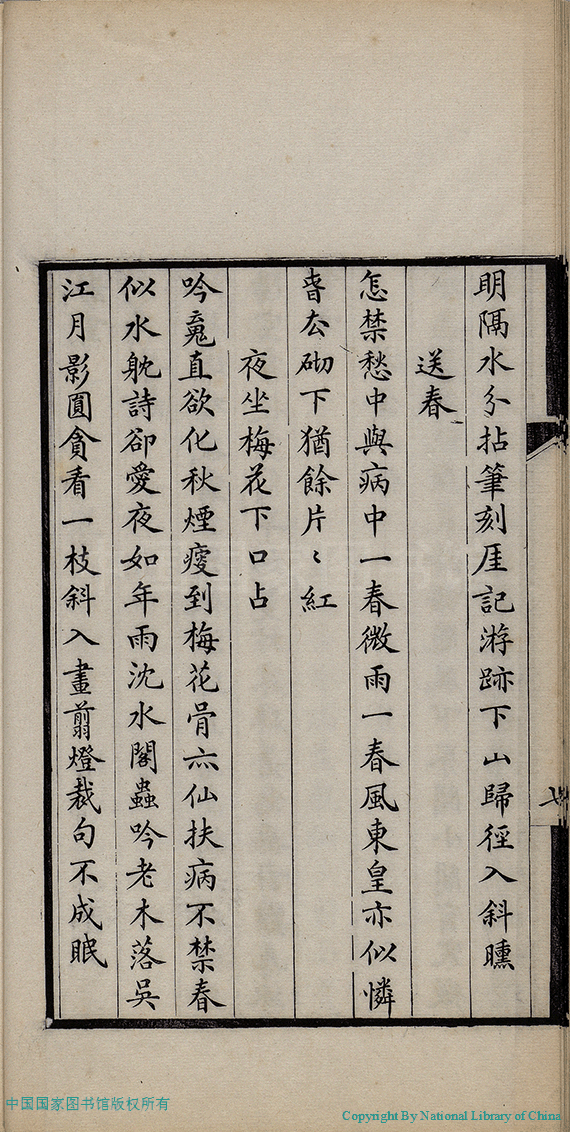 明隔水分拈筆刻厓記游跡下山歸徑入斜曛
送春
怎禁愁中與病中一春微雨一春風東皇亦似憐
旾厺砌下猶餘片〻紅
夜坐梅花下口占
吟䰟直欲化秋煙瘦到梅花骨亦仙扶病不禁春
似水躭詩卻愛夜如年雨沈水閣蟲吟老木落吳
江月影圓貪看一枝斜入畫翦燈裁句不成眠
中国国家图书馆版权所有
Copyright By National Library of China